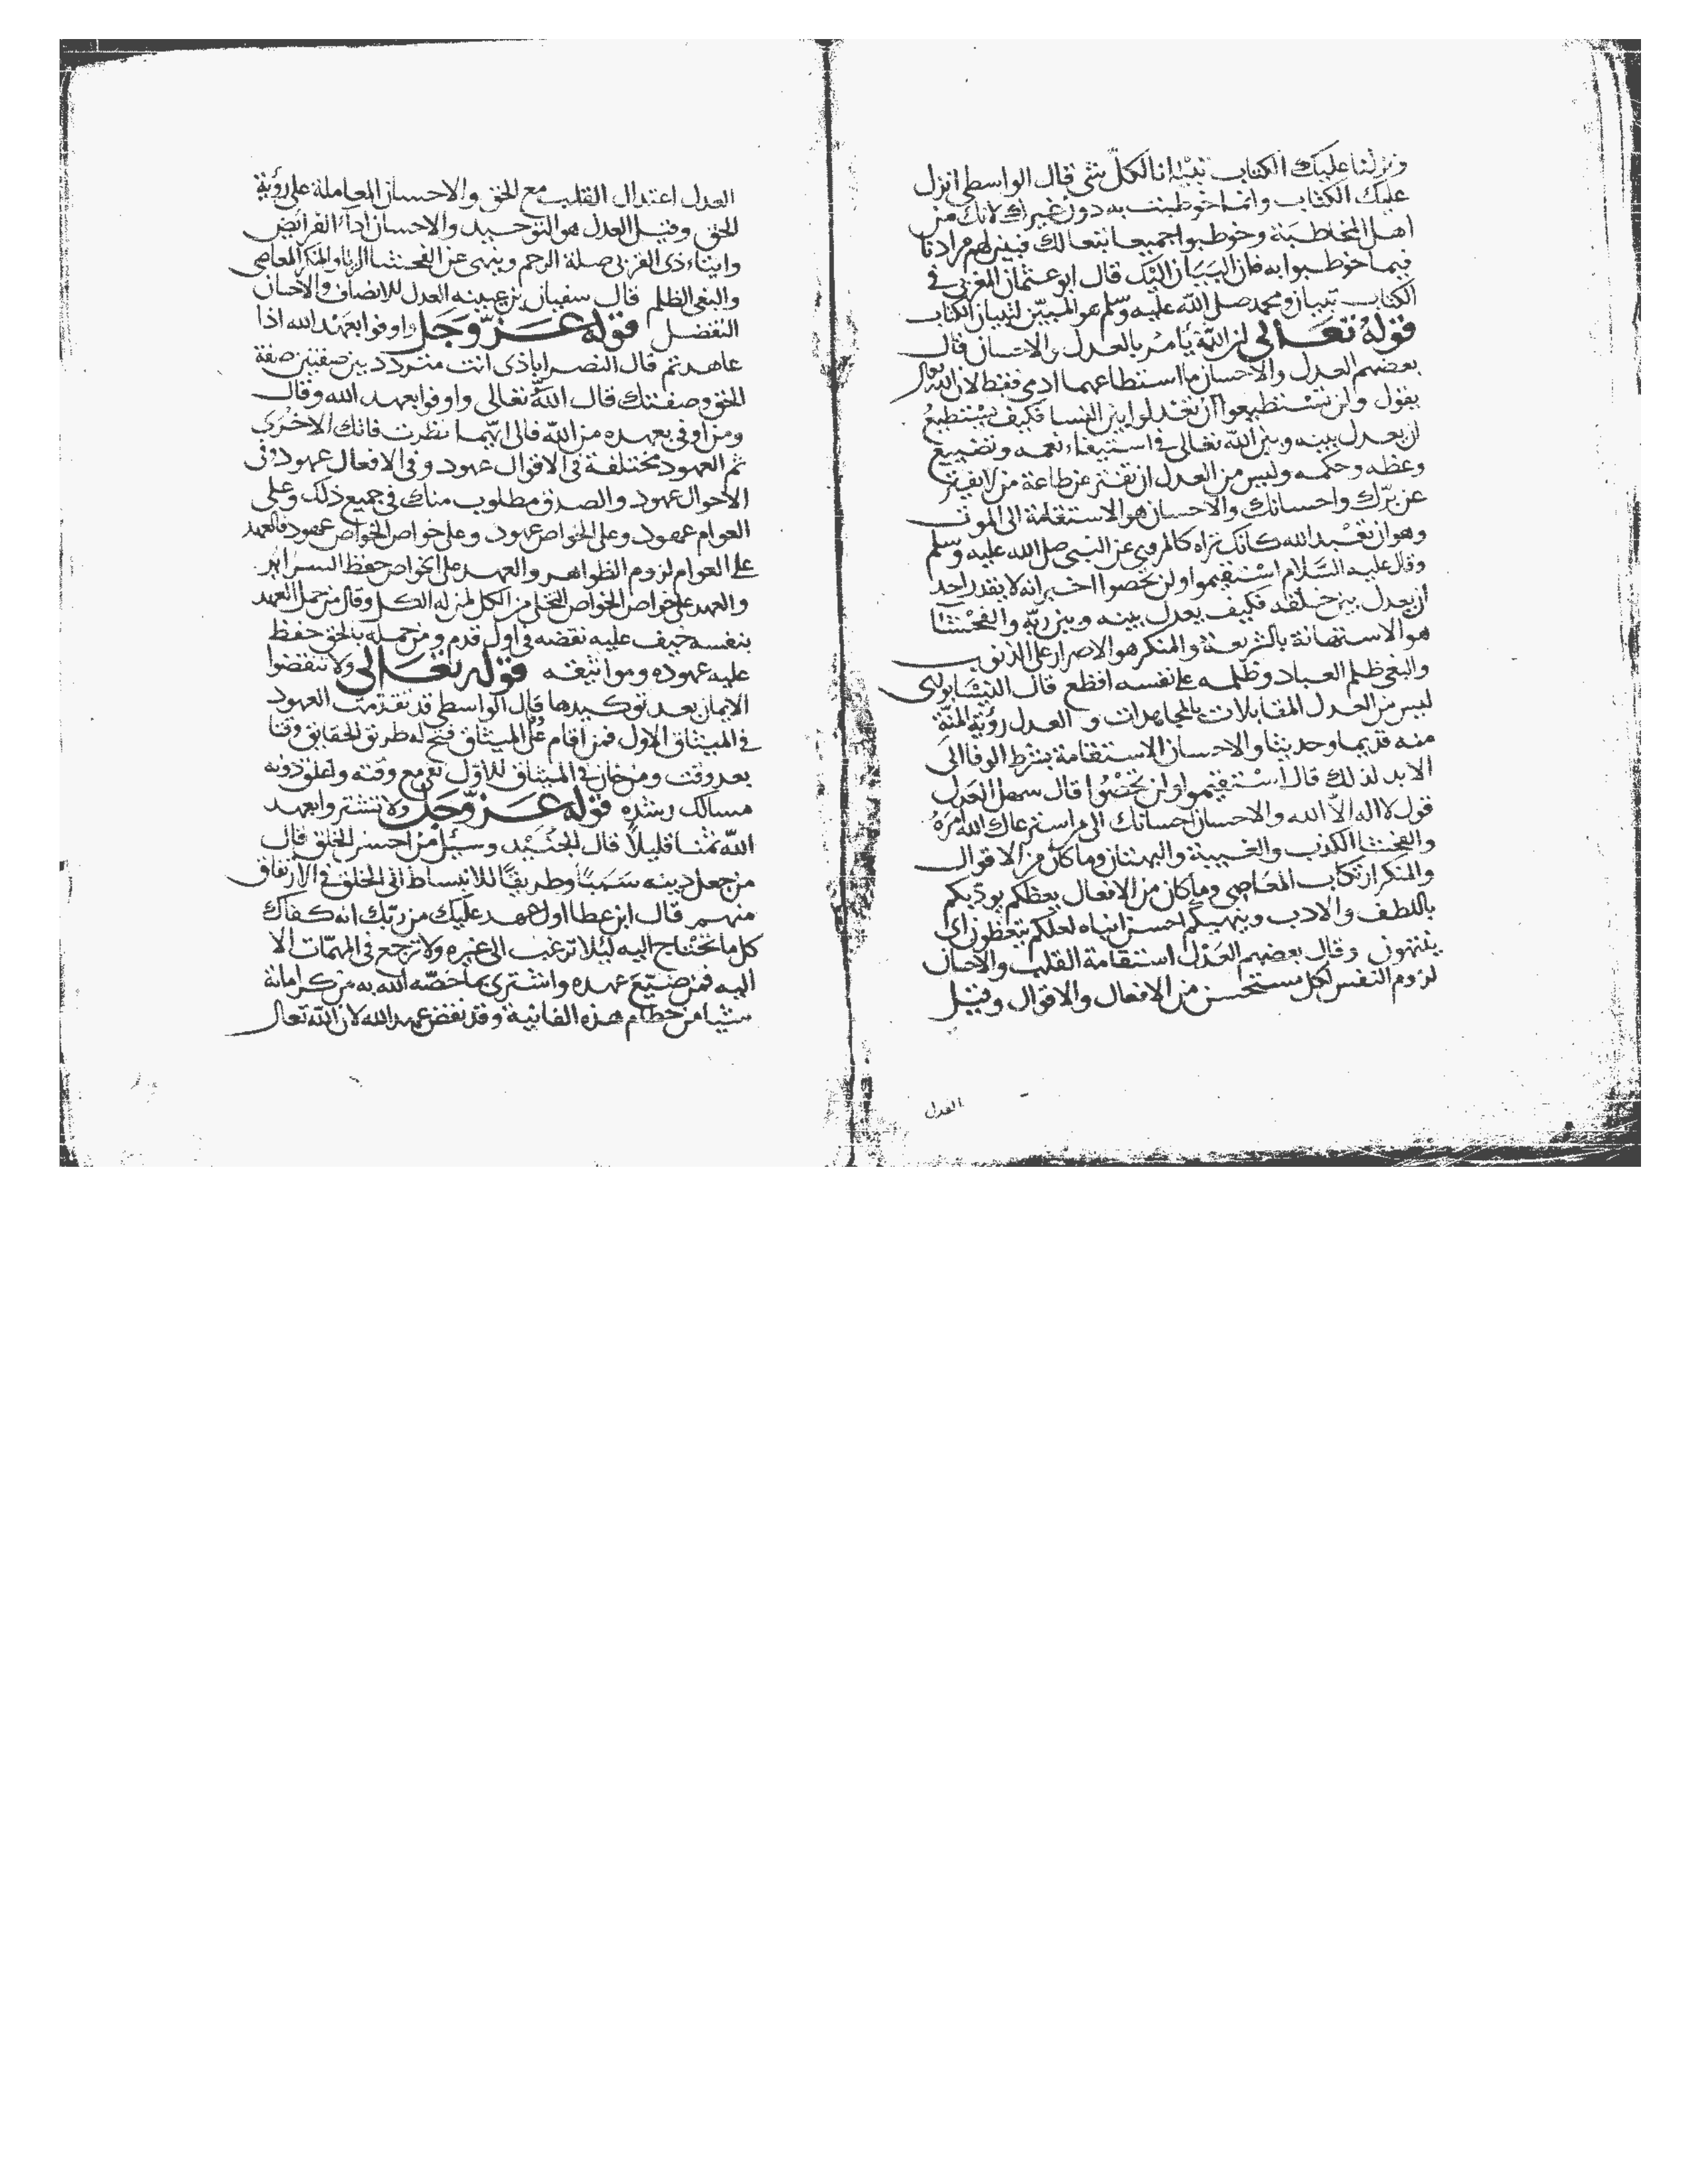 ونزلنا عليك الكتاب تبيانا لكل شي قال الواسطي انزل
عليك الكتاب وانما خوطبت به دون غيرك لانك من
اهل المخاطبة وخوطبوا جميعا بتعا لك فبين لهم مرادنا
فيما خوطبوا به فان البيان اليك قال ابو عثمان المغربي في
الكتاب تبيان ومحمد صلى الله عليه وسلم هو المبين لتبيان الكتاب
قوله تعالى ان الله يأمر بالعدل والاحسان قال
بعضهم العدل والاحسان ما استطاعهما ادمي فقط لان الله تعالى
يقول ولن تستطيعوا ان تعدلوا بين النسا فكيف يستطيع
ان يعدل بينه وبين الله تعالى في استيفاء نعمه وتضييع
وعظه وحكمه وليس من العدل ان تفتر عن طاعة من لا يفتر
عن برّك واحسانك والاحسان هو الاستقامة الى الموت
وهو ان تعبد الله كانك تراه كالمروي عن النبي صلى الله عليه وسلم
وقال عليه السلام استقيموا ولن تحصوا اخبر انه لا يقدر احد
ان يعدل بين خلقه فكيف يعدل بينه وبين ربّه والفحشا
هو الاستهانة بالشريعة والمنكر هو الاصرار على الذنوب
والبغي ظلم العباد وظلمه على نفسه افظع قال النيسابوري
ليس من العدل المقابلات بالمجاهدات و العدل رؤية المنّة
منه قديما وحديثا والاحسان الاستقامة بشرط الوفا الى
الابد لذلك قال استقيموا ولن تحصوا قال سهل العدل
قول لا اله الا الله والاحسان احسانك الى من استرعاك الله امره
والفحشا الكذب والغيبة والبهتان وما كان من الاقوال
والمنكر ارتكاب المعاصي وما كان من الافعال يعظكم يودّبكم
باللطف والادب وينهيكم احسن انباه لعلكم تتعظون اي
ينتهون وقال بعضهم العدل استقامة القلب والاحسان
لزوم النفس لكل مستحسن من الافعال والاقوال وقيل
العدل
العدل اعتدال القلب مع الحق والاحسان المعاملة على رؤية
الحق وقيل العدل هو التوحيد والاحسان اداء الفرائض
وايتاء ذي القربى صلة الرحم وينهى عن الفحشا الزنا والمنكر المعاصي
والبغي الظلم قال سفيان بن عيينه العدل الانصاف والاحسان
التفضل قوله عز وجل واوفوا بعهد الله اذا
عاهدتم قال النصراباذي انت متردد بين صفتين صفة
الحق وصفتك قال الله تعالى واوفوا بعهد الله وقال
ومن اوفى بعهده من الله فالى ايهما نظرت فاتك الاخرى
ثم العهود مختلفة في الاقوال عهود وفي الافعال عهود وفي
الاحوال عهود والصدق مطلوب منك في جميع ذلك وعلى
العوام عهود وعلى الخواص عهود وعلى خواص الخواص عهود فالعهد
على العوام لزوم الظواهر والعهد على الخواص حفظ السراير
والعهد على خواص الخواص التخلي من الكل لمن له الكل وقال من حمل العهد
بنفسه خيف عليه نقضه في اول قدم ومن حمله بالحق حفظ
عليه عهوده ومواثيقه قوله تعالى ولا تنقضوا
الايمان بعد توكيدها قال الواسطي قد تقدمت العهود
في الميثاق الاول فمن اقام على الميثاق فتح له طريق الحقايق وقتا
بعد وقت ومن خان في الميثاق الاول بقي مع وقته واغلق دونه
مسالك رشده قوله عز وجل ولا تشتروا بعهد
الله ثمنا قليلا قال الجنيد وسئل من اخسر الخلق قال
من جعل دينه سببا وطريقا للانبساط الى الخلق في الارتفاق
منهم قال ابن عطا اول عهد عليك من ربّك انه كفاك
كل ما تحتاج اليه ليلا ترغب الى غيره ولا ترجع في المهمات الا
اليه فمن ضيّع عهده واشترى بما خصّه الله به من كراماته
شيا من حطام هذه الفانية وقد نقض عهد الله لان الله تعالى